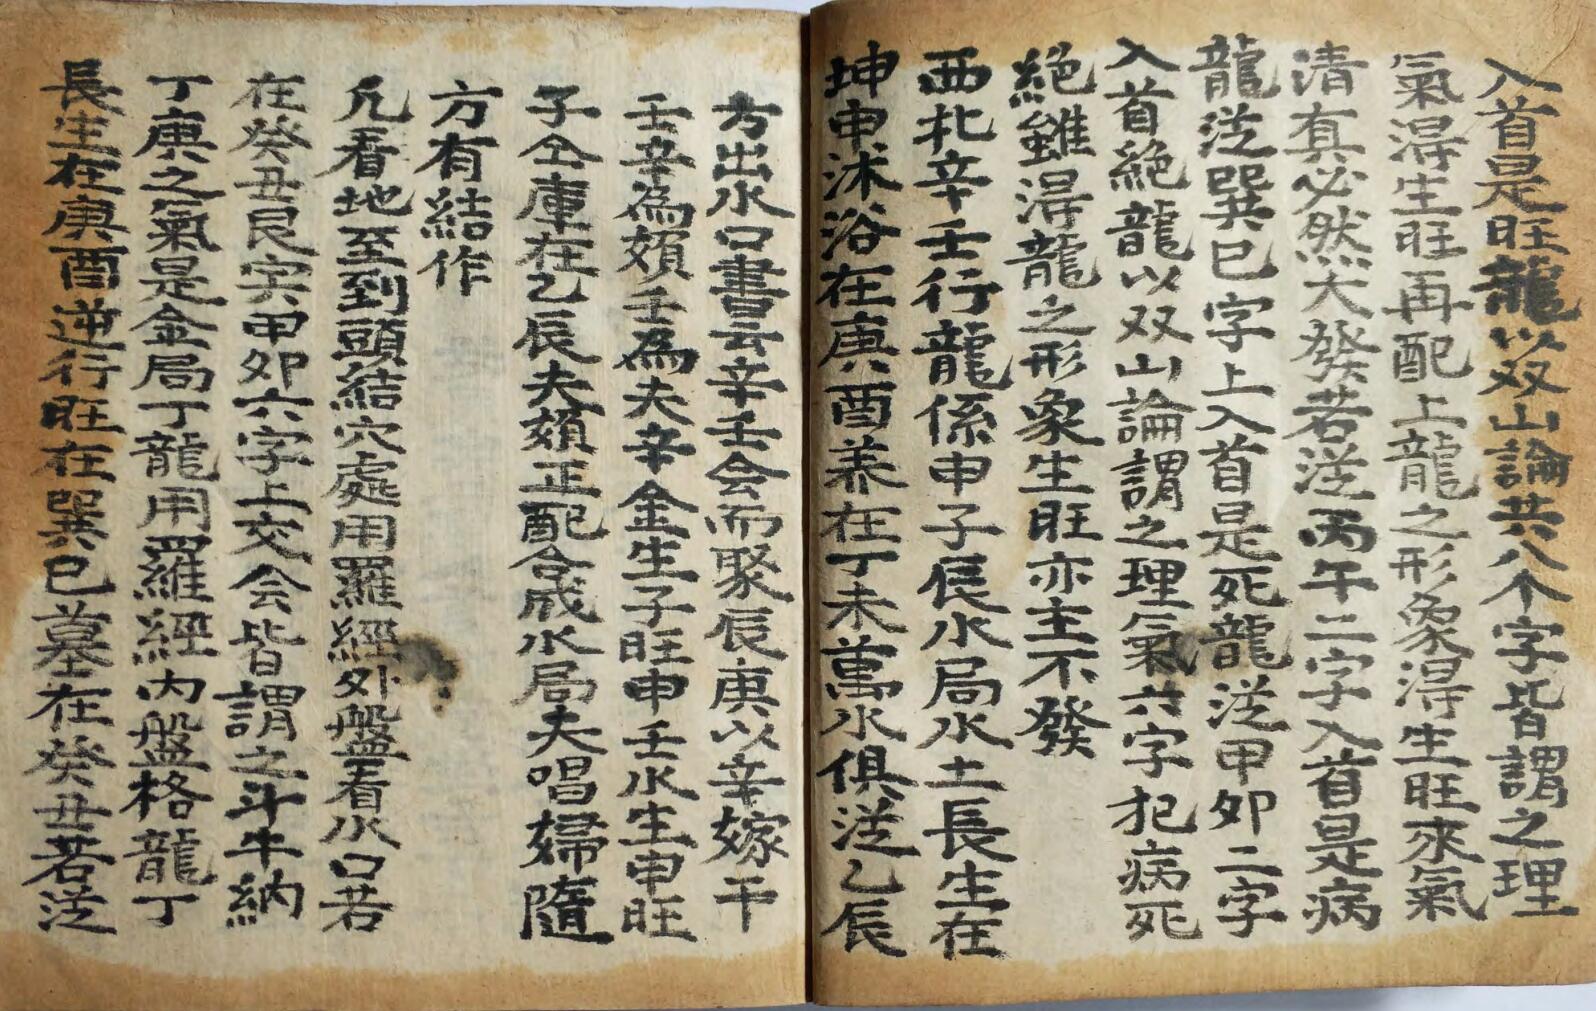 入首是旺龍以双山論共八个字皆謂之理
氣淂生旺再配上龍之形象淂生旺來氣
清真必然大發若从丙午二字入首是病
龍从巽巳字上入首是死龍从甲卯二字
入首絕龍以双山論謂之理氣六字犯病死
絕雖淂龍之形象生旺亦主不發
西北辛壬行龍係申子辰水局水土長生在
坤申沐浴在庚酉养在丁未萬水俱从乙辰
方出水口書云辛壬会而聚辰庚以辛嫁干
壬辛為䫫壬為夫辛金生子旺申壬水生申旺
子仝庫在乙辰夫䫫正配合成水局夫唱婦隨
方有結作
凡看地至到頭結穴處用羅經外盤看水口若
在癸丑艮寅甲卯六字上交会皆謂之斗牛納
丁庚之氣是金局丁龍用羅經内盤格龍丁
長生在庚酉逆行旺在巽巳墓在癸丑若从